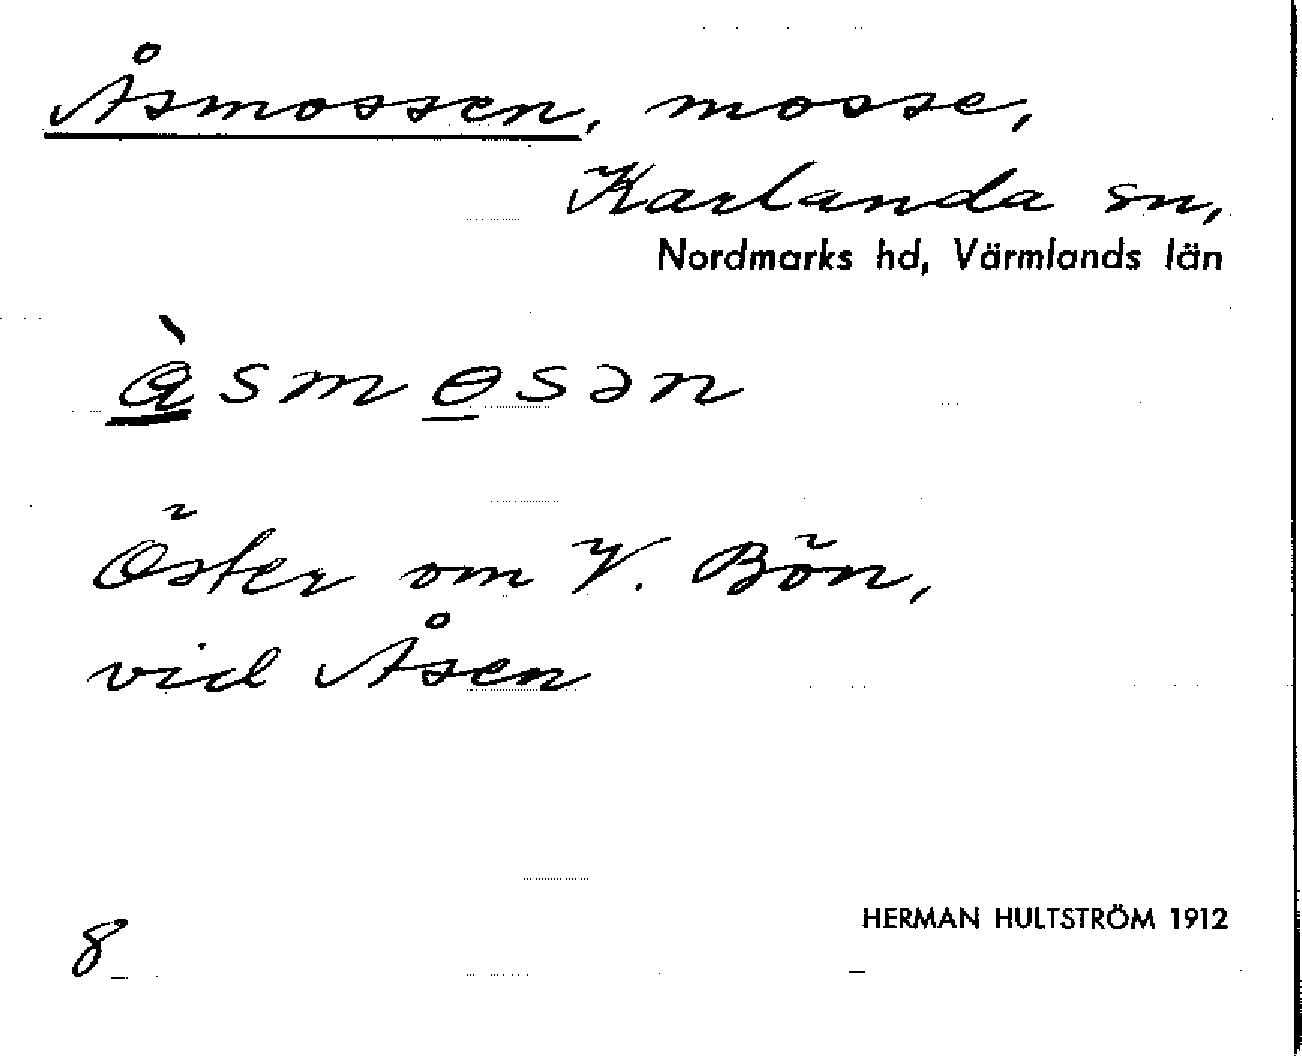 Åsmossen, mosse,
Karlanda sn,
Nordmarks hd, Värmlands län
å̀smɵsən
Öster om V. Bön,
vid Åsen
HERMAN HULTSTRÖM 1912
8